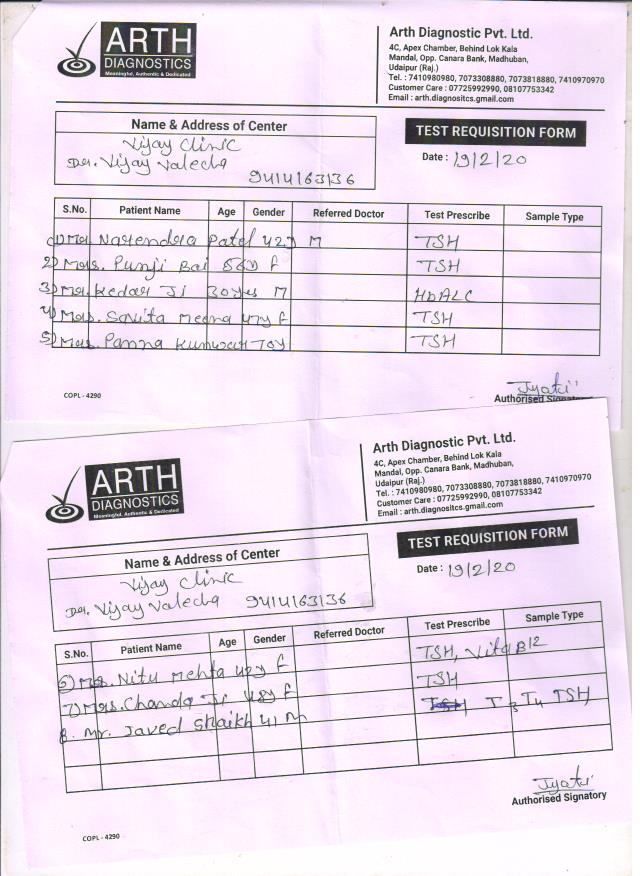 ARTH
DIAGNOSTICS
Meaningful, Authentic & Dedicated
Arth Diagnostic Pvt. Ltd.
4C, Apex Chamber, Behind Lok Kala
Mandal, Opp. Canara Bank, Madhuban,
Udaipur (Raj.)
Tel. : 7410980980, 7073308880, 7073818880, 7410970970
Customer Care : 07725992990, 08107753342
Email : arth.diagnositcs.gmail.com
Name & Address of Center
Vijay Clinic
Dr. Vijay Valecha
9414163136
TEST REQUISITION FORM
Date : 19/2/20
S.No. Patient Name Age Gender Referred Doctor Test Prescribe Sample Type
1) Mr. Narendra Patel 42y M TSH
2) Mrs. Punji Bai f TSH
3) Mr. Kedar Ji 30yrs M HbA1C
4) Mrs. Savita Meena 47y f TSH
5) Mrs. Panna Kunwar 70y TSH
Jyoti
Authorised Signatory
COPL - 4290
ARTH
DIAGNOSTICS
Meaningful, Authentic & Dedicated
Arth Diagnostic Pvt. Ltd.
4C, Apex Chamber, Behind Lok Kala
Mandal, Opp. Canara Bank, Madhuban,
Udaipur (Raj.)
Tel. : 7410980980, 7073308880, 7073818880, 7410970970
Customer Care : 07725992990, 08107753342
Email : arth.diagnositcs.gmail.com
Name & Address of Center
Vijay Clinic
Dr. Vijay Valecha 9414163136
TEST REQUISITION FORM
Date : 19/2/20
S.No. Patient Name Age Gender Referred Doctor Test Prescribe Sample Type
6) Mrs. Nitu Mehta 42y f TSH, Vit B12
7) Mrs. Chanda Ji 48y f TSH
8. Mr. Javed Shaikh 41 M T3 T4 TSH
Jyoti
Authorised Signatory
COPL - 4290